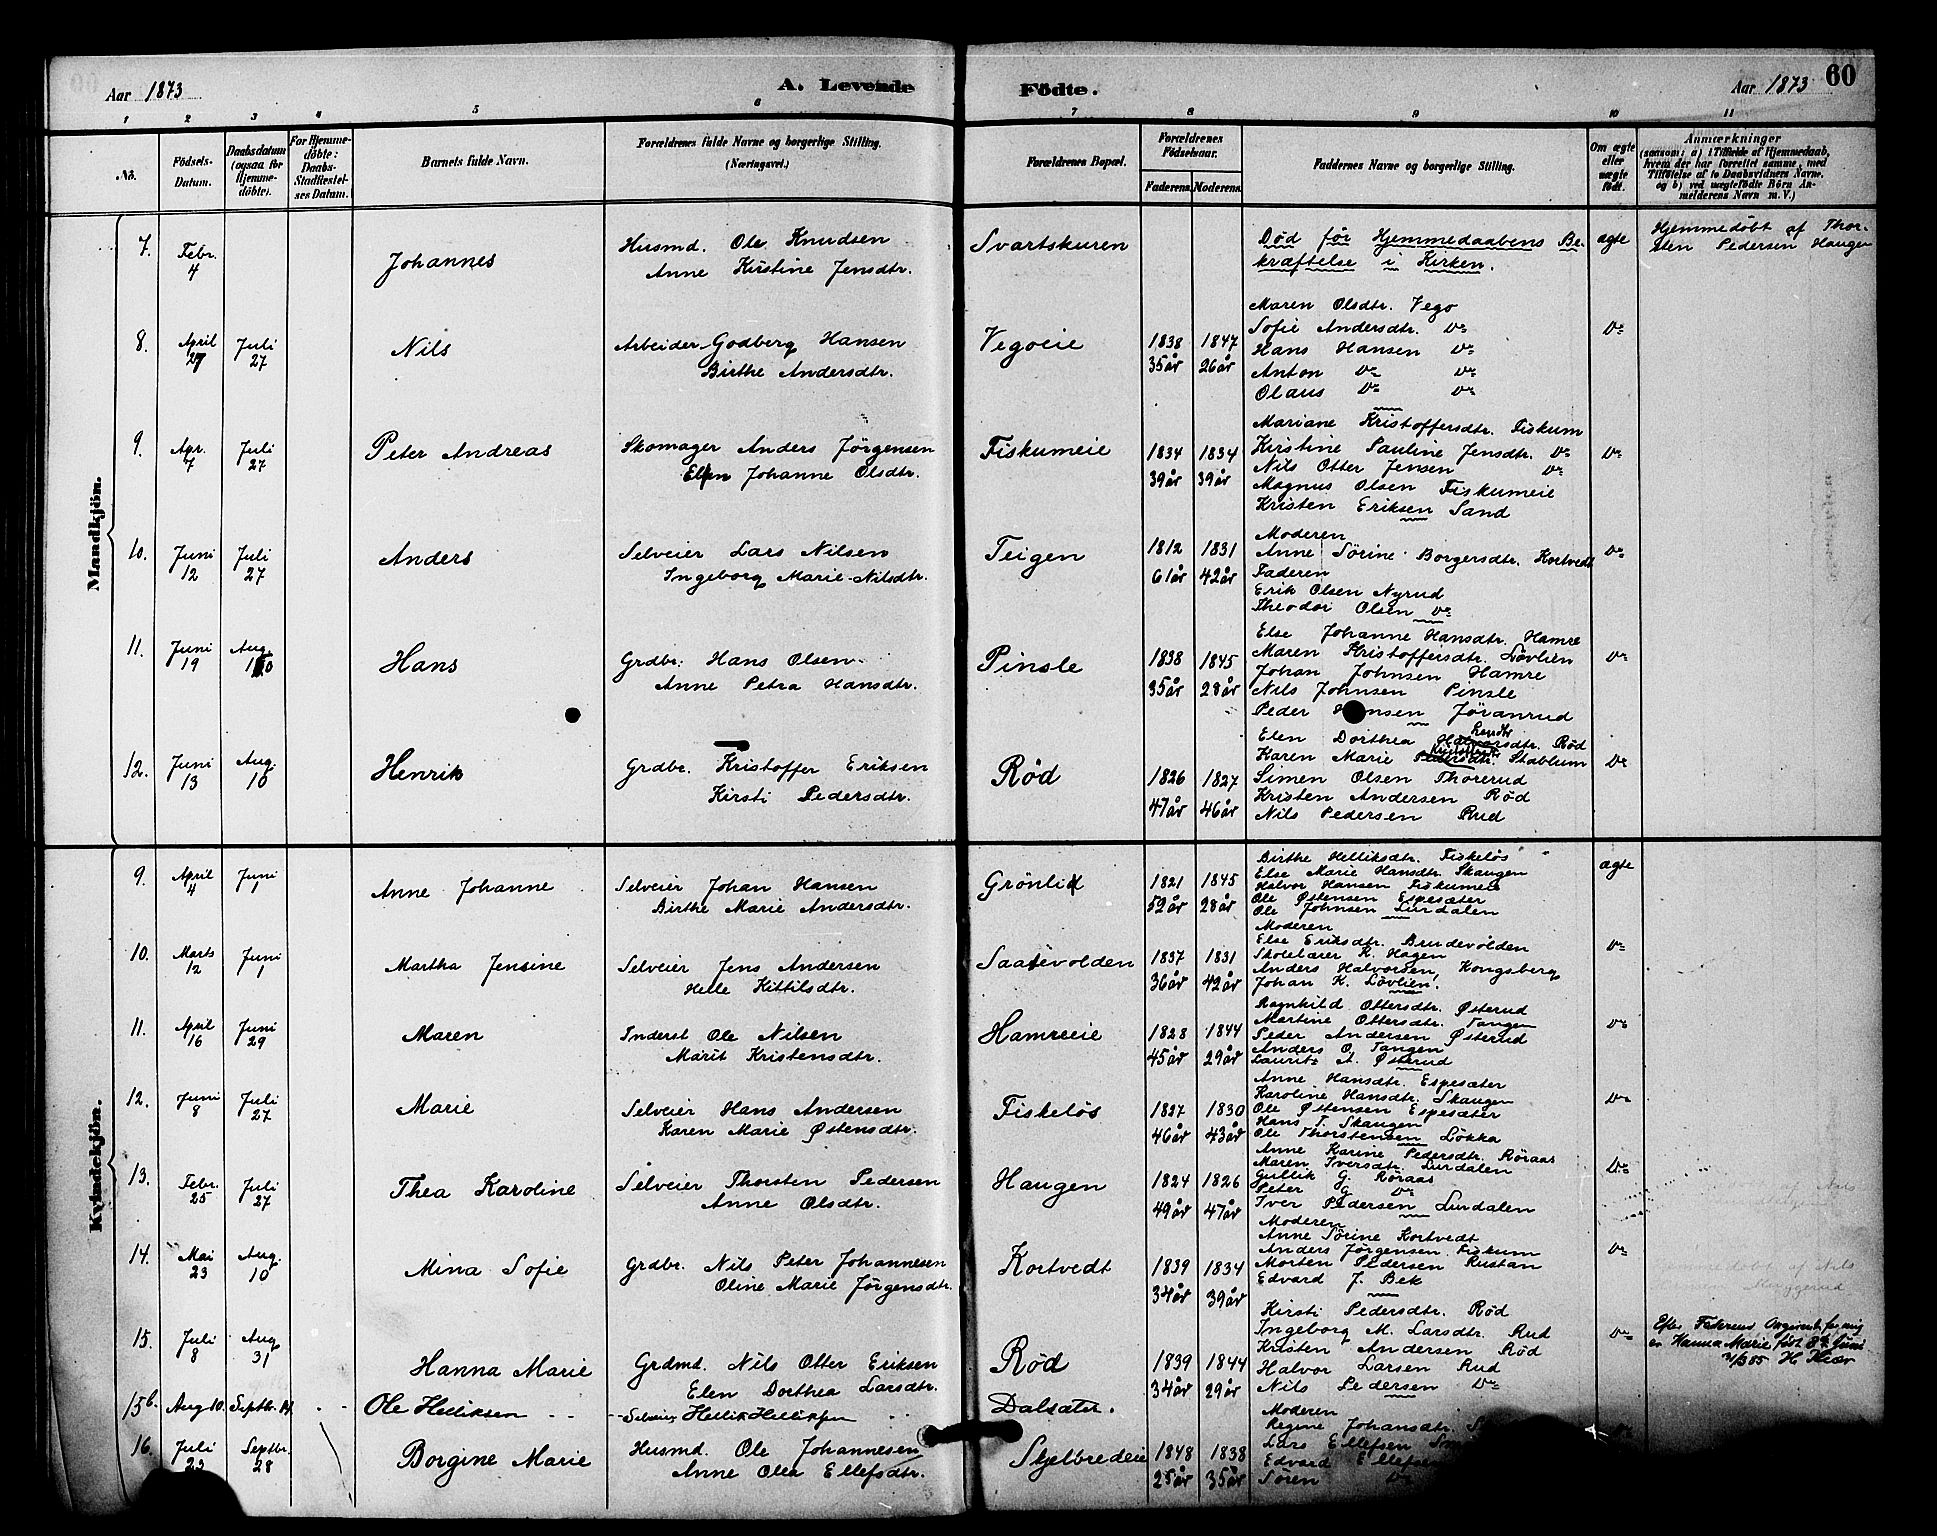 Aar 1873
A. Levende
Födte.
Aar 1873
60
1 2 3 4 5 6 7 8 9 10 11
No.
Födsels-
Datum.
Daabsdatum
(ogsaa for
Hjemme-
döbte).
For Hjemme-
döbte:
Daabs-
Stadfæstel-
ses Datum.
Barnets fulde Navn.
Forældrenes fulde Navne og borgerlige Stilling.
(Næringsvei.)
Forældrenes Bopæl.
Forældrenes
Födselsaar.
Faderens. Moderens.
Faddernes Navne og borgerlige Stilling.
Om ægte
eller
uægte
født.
Anmærkninger
(saasom: a) i Tilfælde af Hjemmedaab,
hvem der har forrettet samme, med
Tilföielse af to Daabsvidners Navne,
og b) ved uægtefödte Börn An-
melderens Navn m. V.)
Mandkjön.
7.
Febr.
4
Johannes
Husmd. Ole Knudsen
Anne Kirstine Jensdtr.
Svartskuren
Död før Hjemmedaabens Be-
kræftelse i Kirken.
ægte
Hjemmedöbt af Thor-
sten Pedersen Haugen
8.
April
27
Juli
27
Nils
Arbeider Godberg Hansen
Birthe Andersdtr.
Vegoeie
1838 1847
35år 26år
Maren Olsdtr. Vego
Sofie Andersdtr. Do
Hans Hansen Do
Anton Do Do
Olaus Do Do
Do
9.
Apr.
7
Juli
27
Peter Andreas
Skomager Anders Jörgensen
Elen Johanne Olsdtr.
Fiskumeie
1834 1834
39år 39år
Mariane Kristoffersdtr. Fiskum
Kirstine Pauline Jensdtr. Do
Nils Otter Jensen Do
Magnus Olsen Fiskumeie
Kristen Eriksen Sand
Do
10.
Juni
12
Juli
27
Anders
Selveier Lars Nilsen
Ingeborg Marie Nilsdtr.
Teigen
1812 1831
61år 42år
Moderen
Anne Sörine Borgersdtr. Kortvedt
Faderen
Erik Olsen Nyrud
Theodor Olsen Do
Do
11.
Juni
19
Aug.
10
Hans
Grdbr. Hans Olsen
Anne Petra Hansdtr.
Pinsle
1838 1845
35år 28år
Else Johanne Hansdtr. Hamre
Maren Kristoffersdtr. Lövlien
Johan Johnsen Hamre
Nils Johnsen Pinsle
Peder Hansen Jöranrud
Do
12.
Juni
13
Aug.
10
Henrik
Grdbr. Kristoffer Eriksen
Kirsti Pedersdtr.
Röd
1826 1827
47år 46år
Elen Dorthea Halvorsdtr. Röd
Karen Marie Pedersdtr. Stablum
Simen Olsen Thorerud
Kristen Andersen Röd
Nils Pedersen Rud
Do
Kvindekjön.
9.
April
4
Juni
1
Anne Johanne
Selveier Johan Hansen
Birthe Marie Andersdtr.
Grönli
1821 1845
52år 28år
Birthe Helliksdtr. Fiskelös
Else Marie Hansdtr. Skaugen
Halvor Hansen Fiskumeie
Ole Østensen Espesæter
Ole Johnsen Lurdalen
ægte
10.
Marts
12
Juni
1
Martha Jensine
Selveier Jens Andersen
Helle Kittilsdtr.
Saatevolden
1837 1831
36år 42år
Moderen
Else Eriksdtr. Brudevölden
Skolelærer K. Hagen
Anders Halvorsen, Kongsberg
Johan K. Lövlien.
Do
11.
April
16
Juni
29
Maren
Inderst Ole Nilsen
Marit Kristensdtr.
Hamreeie
1828 1844
45år 29år
Ragnhild Ottersdtr. Østerud
Martine Ottersdtr. Tangen
Peder Andersen Østerud
Anders O. Tangen
Lauritz A. Østerud
Do
12.
Juni
8
Juli
27
Marie
Selveier Hans Andersen
Karen Marie Østensdtr.
Fiskelös
1827 1830
46år 43år
Anne Hansdtr. Espesæter
Karoline Hansdtr. Skaugen
Ole Østensen Espesæter
Hans T. Skaugen
Ole Thorstensen Lökka
Do
13.
Febr.
25
Juli
27
Thea Karoline
Selveier Thorsten Pedersen
Anne Olsdtr.
Haugen
1824 1826
49år 47år
Anne Karine Pedersdtr. Röraas
Maren Iversdtr. Lurdalen
Gullik G. Röraas
Peter G. Do
Iver Pedersen Lurdalen
Do
14.
Mai
23
Aug.
10
Mina Sofie
Grdbr. Nils Peter Johannesen
Oline Marie Jörgensdtr.
Kortvedt
1839 1834
34år 39år
Moderen
Anne Sörine Kortvedt
Anders Jörgensen Fiskum
Morten Pedersen Rustan
Edvard J. Bek
Do
15.
Juli
8
Aug
31
Hanna Marie
Grdmd. Nils Otter Eriksen
Elen Dorthea Larsdtr.
Röd
1839 1844
34år 29år
Kirsti Pedersdtr. Röd
Ingeborg M. Larsdtr. Rud
Kristen Andersen Röd
Halvor Larsen Rud
Nils Pedersen Do
Do
Efter Faderens Angivende for mig
er Hanna Marie født 8de Juni
H Kiær
15b.
Aug 10.
Septbr. 14
Ole Helliksen
Selveier Hellik Helliksen
Dalsæter.
16.
Juli
23
Septbr.
28
Borgine Marie
Husmd. Ole Johannesen
Anne Olea Ellefsdtr.
Skjelbredeie
1848 1838
25år 35år
Moderen
Regine Johansdtr.
Lars Ellefsen
Edvard Ellefsen
Sören Do
Do